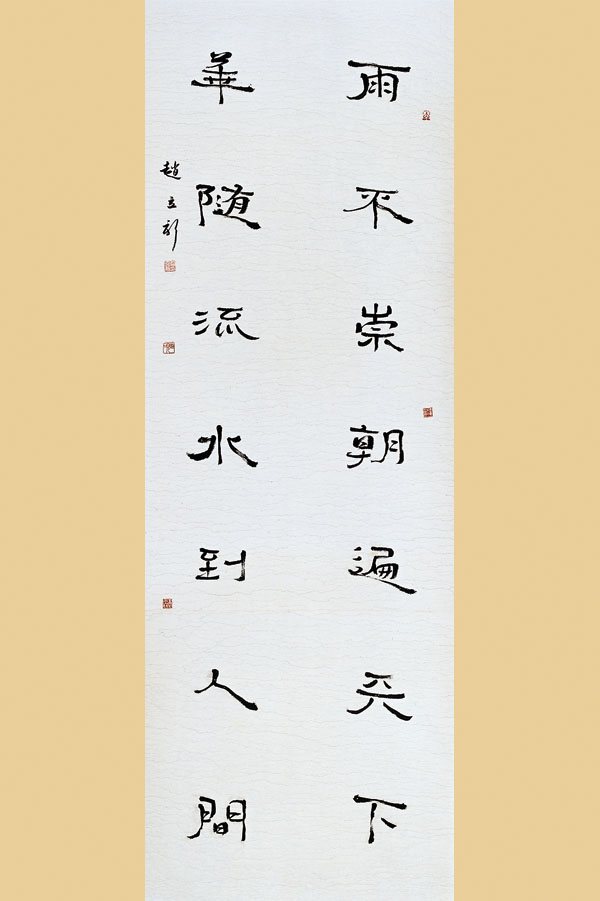 雨不崇朝遍天下
華随流水到人間
趙立